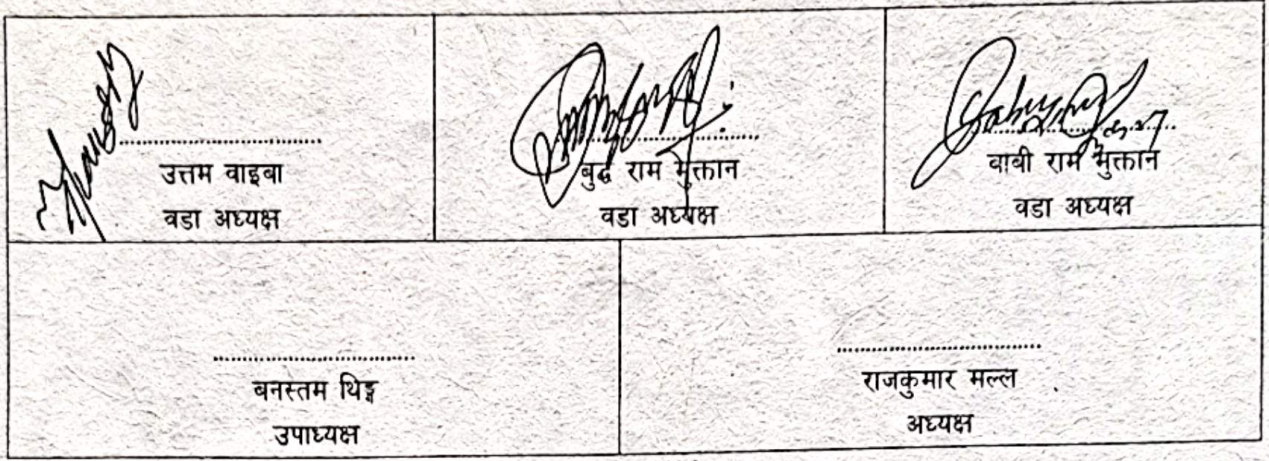 उत्तम वाइबा
वडा अध्यक्ष
बुद्ध राम मुक्तान
वडा अध्यक्ष
बाबी राम मुक्तान
वडा अध्यक्ष
बनस्तम थिङ्ग
उपाध्यक्ष
राजकुमार मल्ल
अध्यक्ष